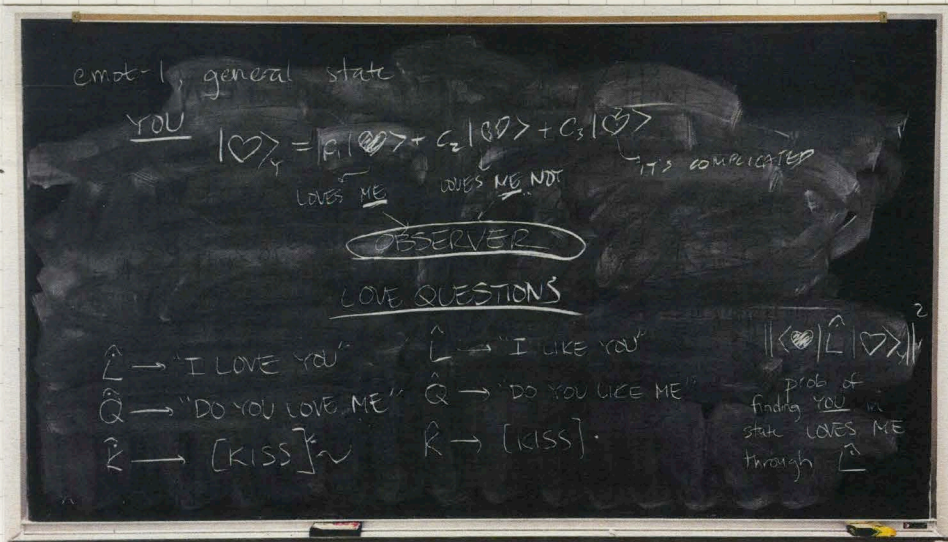 emot-1, general state
YOU
|♡⟩_Y = c₁|♥⟩ + c₂|♡⟩ + c₃|♡⟩
LOVES ME
LOVES ME NOT
IT'S COMPLICATED
OBSERVER
LOVE QUESTIONS
L̂ → "I LOVE YOU"
Q̂ → "DO YOU LOVE ME"
K̂ → [KISS]~
L̂ → "I LIKE YOU"
Q̂ → "DO YOU LIKE ME"
K̂ → [KISS].
||⟨♥|L̂|♡⟩_Y||²
prob of
finding YOU in
state LOVES ME
through L̂